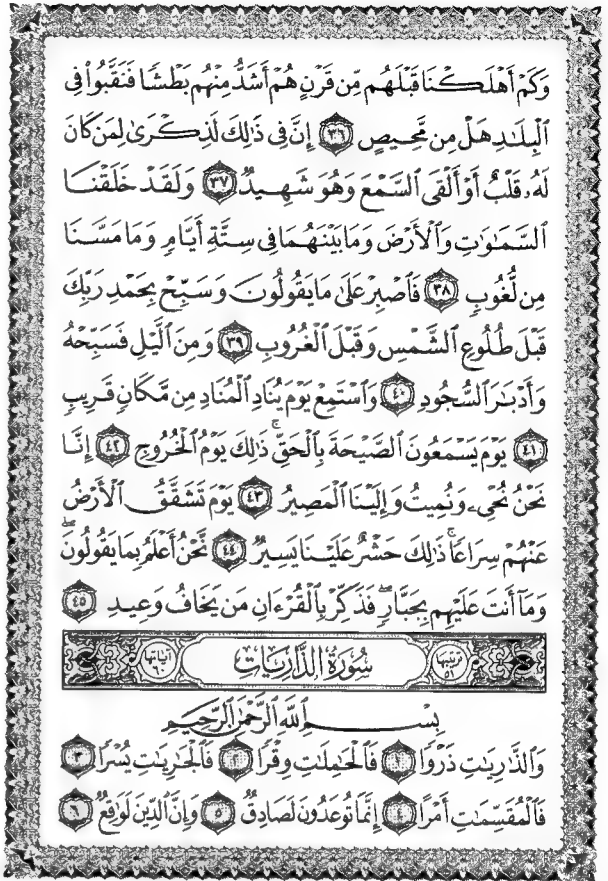 وَكَمْ أَهْلَكْنَا قَبْلَهُم مِّن قَرْنٍ هُمْ أَشَدُّ مِنْهُم بَطْشًا فَنَقَّبُوا۟ فِى
ٱلْبِلَـٰدِ هَلْ مِن مَّحِيصٍ ٣٦ إِنَّ فِى ذَٰلِكَ لَذِكْرَىٰ لِمَن كَانَ
لَهُۥ قَلْبٌ أَوْ أَلْقَى ٱلسَّمْعَ وَهُوَ شَهِيدٌ ٣٧ وَلَقَدْ خَلَقْنَا
ٱلسَّمَـٰوَٰتِ وَٱلْأَرْضَ وَمَا بَيْنَهُمَا فِى سِتَّةِ أَيَّامٍ وَمَا مَسَّنَا
مِن لُّغُوبٍ ٣٨ فَٱصْبِرْ عَلَىٰ مَا يَقُولُونَ وَسَبِّحْ بِحَمْدِ رَبِّكَ
قَبْلَ طُلُوعِ ٱلشَّمْسِ وَقَبْلَ ٱلْغُرُوبِ ٣٩ وَمِنَ ٱلَّيْلِ فَسَبِّحْهُ
وَأَدْبَـٰرَ ٱلسُّجُودِ ٤٠ وَٱسْتَمِعْ يَوْمَ يُنَادِ ٱلْمُنَادِ مِن مَّكَانٍ قَرِيبٍ
٤١ يَوْمَ يَسْمَعُونَ ٱلصَّيْحَةَ بِٱلْحَقِّ ۚ ذَٰلِكَ يَوْمُ ٱلْخُرُوجِ ٤٢ إِنَّا
نَحْنُ نُحْىِۦ وَنُمِيتُ وَإِلَيْنَا ٱلْمَصِيرُ ٤٣ يَوْمَ تَشَقَّقُ ٱلْأَرْضُ
عَنْهُمْ سِرَاعًا ۚ ذَٰلِكَ حَشْرٌ عَلَيْنَا يَسِيرٌ ٤٤ نَّحْنُ أَعْلَمُ بِمَا يَقُولُونَ ۖ
وَمَآ أَنتَ عَلَيْهِم بِجَبَّارٍ ۖ فَذَكِّرْ بِٱلْقُرْءَانِ مَن يَخَافُ وَعِيدِ ٤٥
ترتيبها ٥١ سُورَةُ الذَّارِيَاتِ آياتها ٦٠
بِسْمِ ٱللَّهِ ٱلرَّحْمَـٰنِ ٱلرَّحِيمِ
وَٱلذَّٰرِيَـٰتِ ذَرْوًا ١ فَٱلْحَـٰمِلَـٰتِ وِقْرًا ٢ فَٱلْجَـٰرِيَـٰتِ يُسْرًا ٣
فَٱلْمُقَسِّمَـٰتِ أَمْرًا ٤ إِنَّمَا تُوعَدُونَ لَصَادِقٌ ٥ وَإِنَّ ٱلدِّينَ لَوَٰقِعٌ ٦